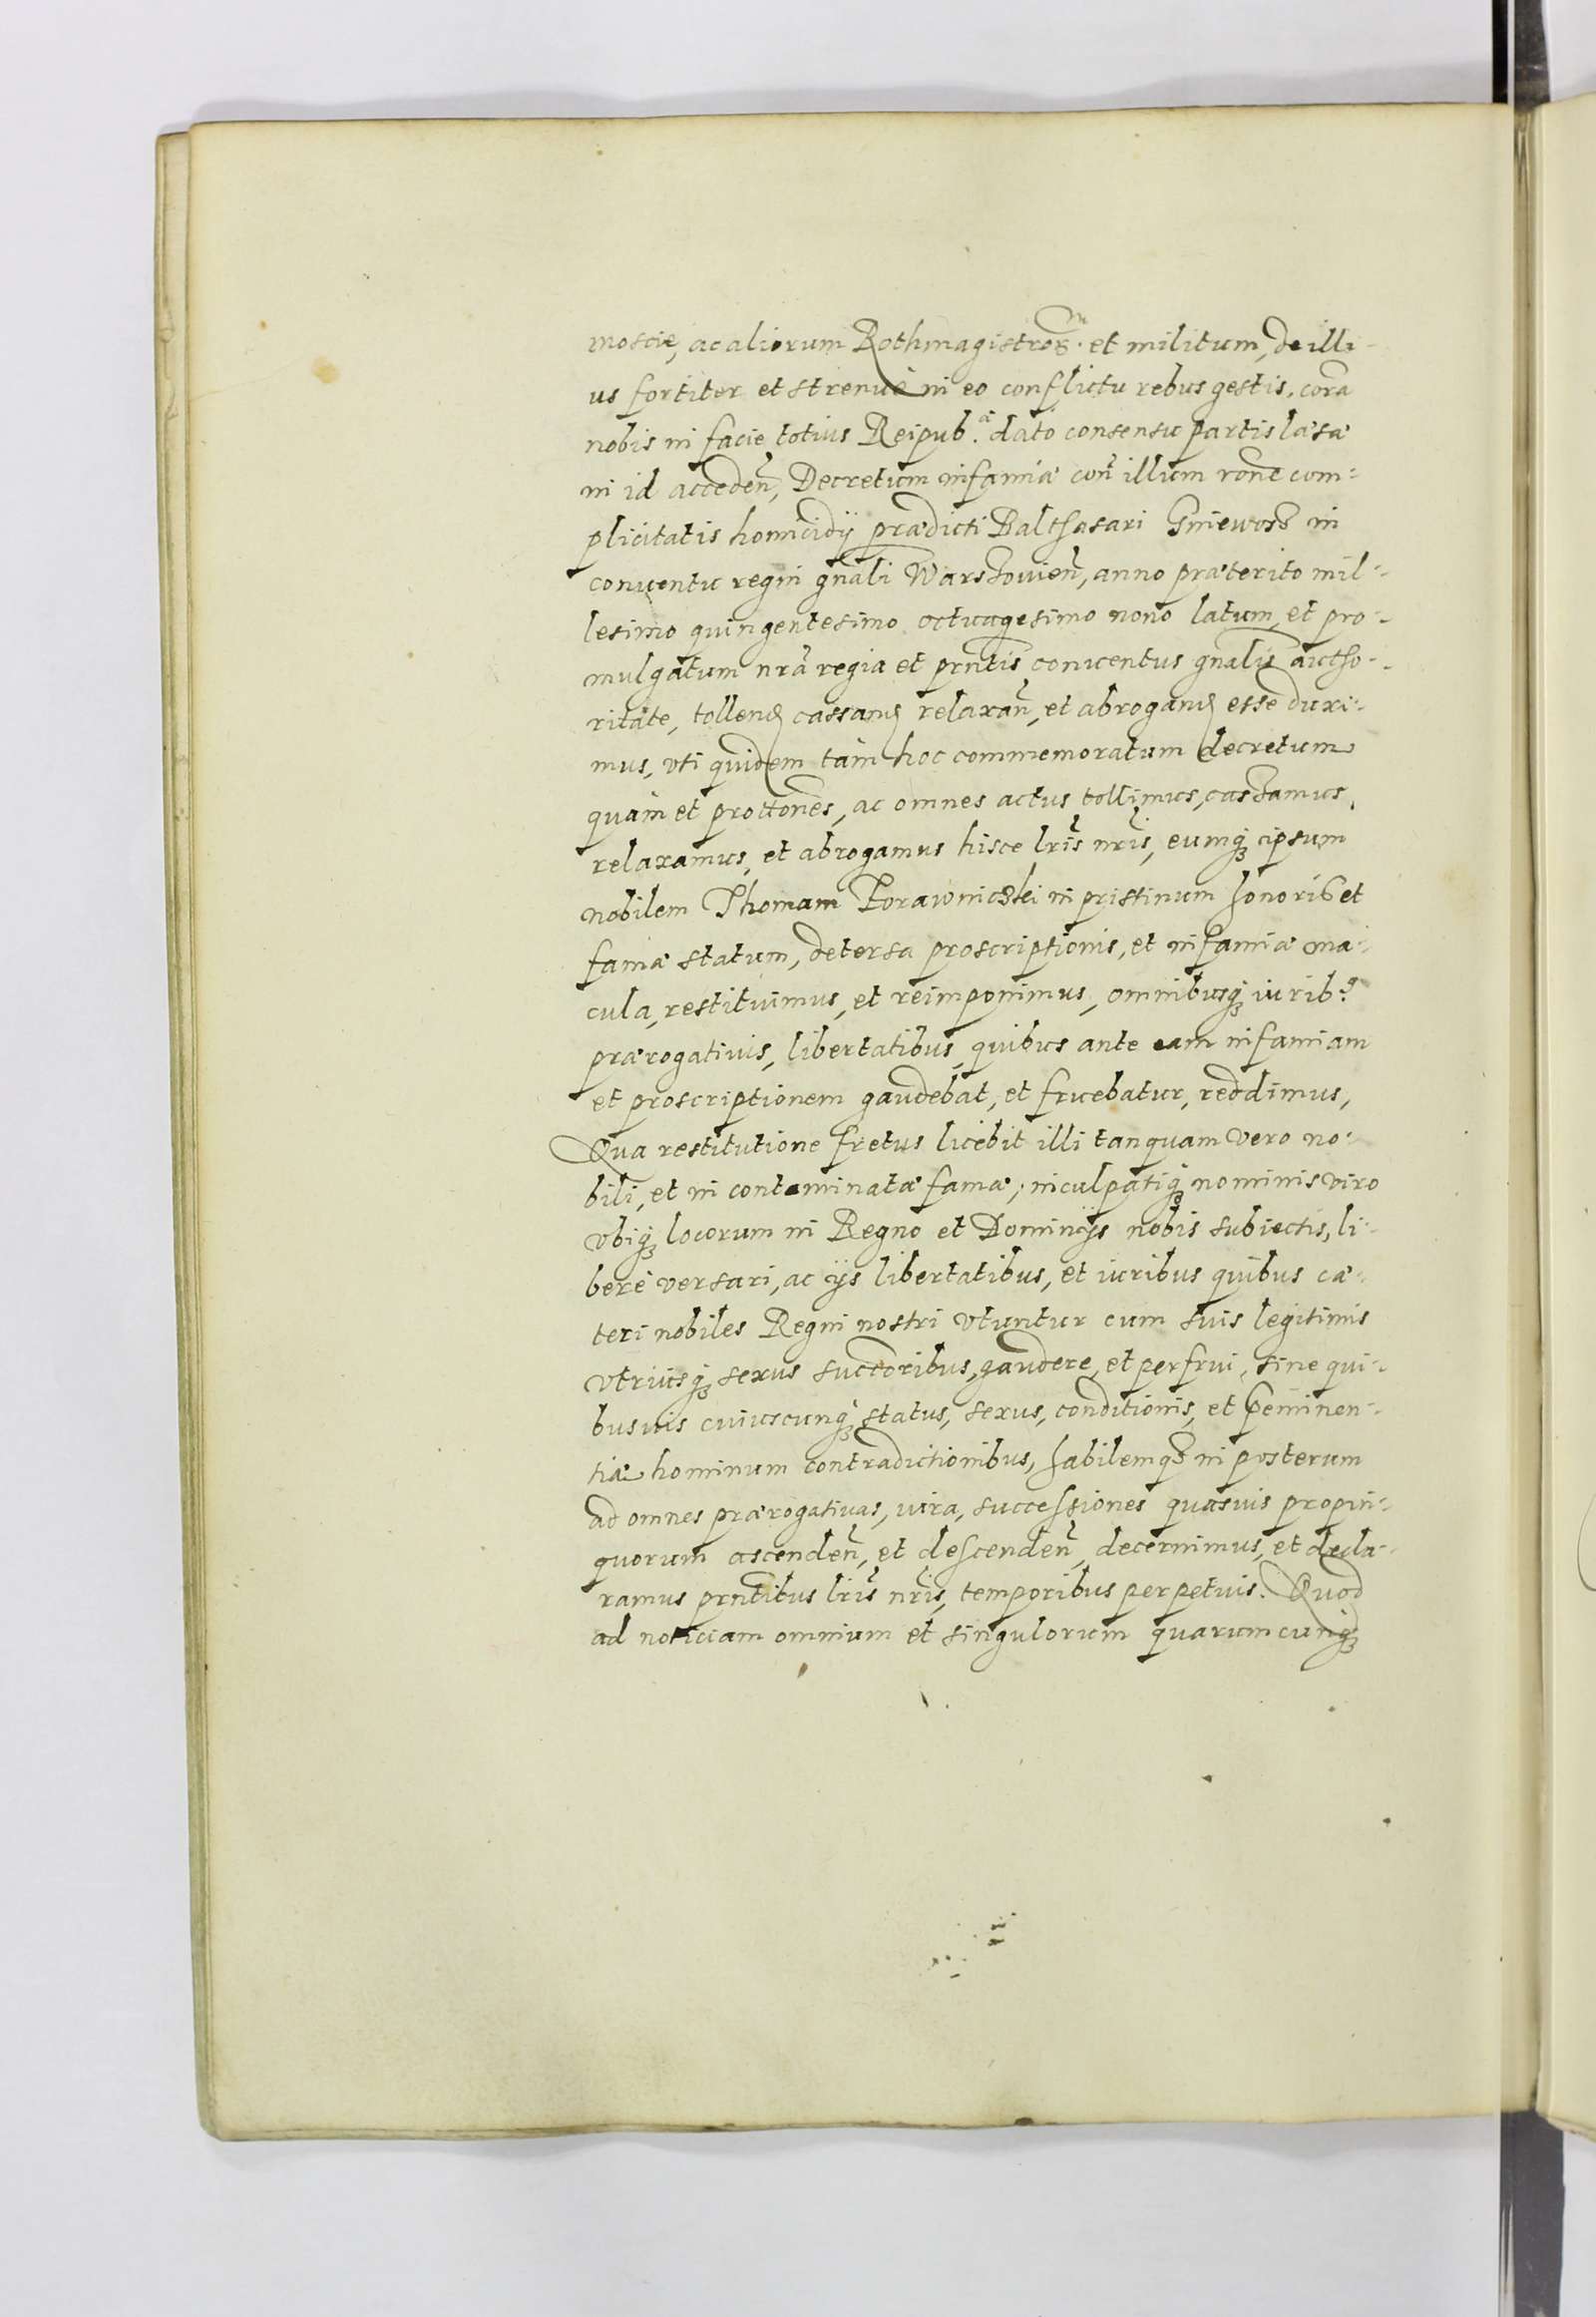 moscie, ac aliorum Rothmagistror. et militum, de illi-
us fortiter et strenuè in eo conflictu rebus gestis, corã
nobis in facie totius Reipub.ᵃᵉ dato consensu partis læsæ
in id acceden̄, Decretum infamiæ con̄ illum rone com=
plicitatis homicidij prædicti Balthasari Gniewosz in
conuentu regni gnãli Warszouien̄, anno præterito mil=
lesimo quingentesimo octuagesimo nono latum, et pro=
mulgatum nrã regia et prñtis conuentus gnãlis auctho=
ritate, tollend cassand relaxan̄, et abrogand esse duxi=
mus, vti quidem tàm hoc commemoratum decretum
quàm et prottones, ac omnes actus tollimus, cassamus,
relaxamus, et abrogamus hisce lris̃ nris̃, eumqꝫ ipsum
nobilem Thomam Porawnicski in pristinum honoris et
famæ statum, detersa proscriptionis, et infamiæ ma=
cula, restituimus, et reimponimus, omnibusqꝫ iurib.⁹
prærogatiuis, libertatibus, quibus ante eam infamiam
et proscriptionem gaudebat, et fruebatur, reddimus,
Qua restitutione fretus licebit illi tanquam vero no=
bili, et in contaminatæ famæ, inculpatiqꝫ nominis viro
vbiqꝫ locorum in Regno et Dominijs nobis subiectis, li=
berè versari, ac ijs libertatibus, et iuribus quibus cæ=
teri nobiles Regni nostri vtuntur cum suis legitimis
vtriusqꝫ sexus succoribus, gaudere, et perfrui, sine qui=
busuis cuiuscunqꝫ status, sexus, conditionis, et p̃eminen=
tiæ hominum contradictionibus, habilemqꝫ in posterum
ad omnes prærogatiuas, iura, successiones quasuis propin=
quorum ascenden̄, et descenden̄, decernimus, et decla=
ramus prñtibus lris̃ nris̃, temporibus perpetuis. Quod
ad noticiam omnium et singulorum quarumcunqꝫ